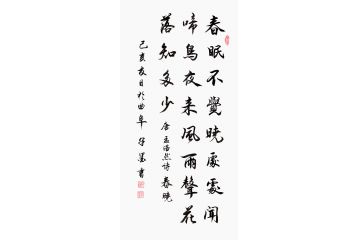 春眠不覺曉處處聞
啼鳥夜来風雨聲花
落知多少 唐孟浩然诗春曉
己亥春日於曲阜